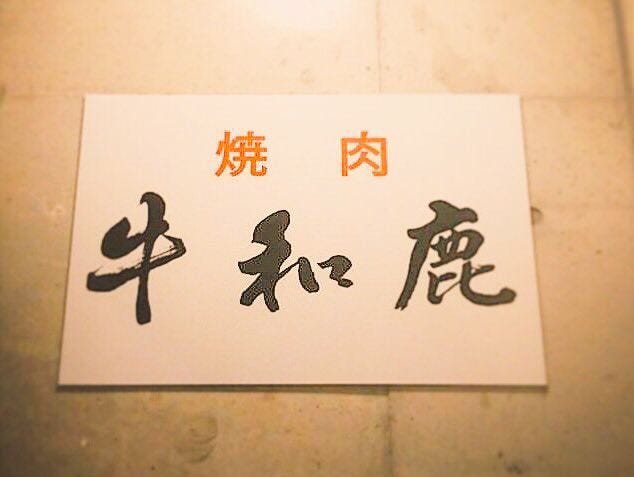 焼肉
牛和鹿